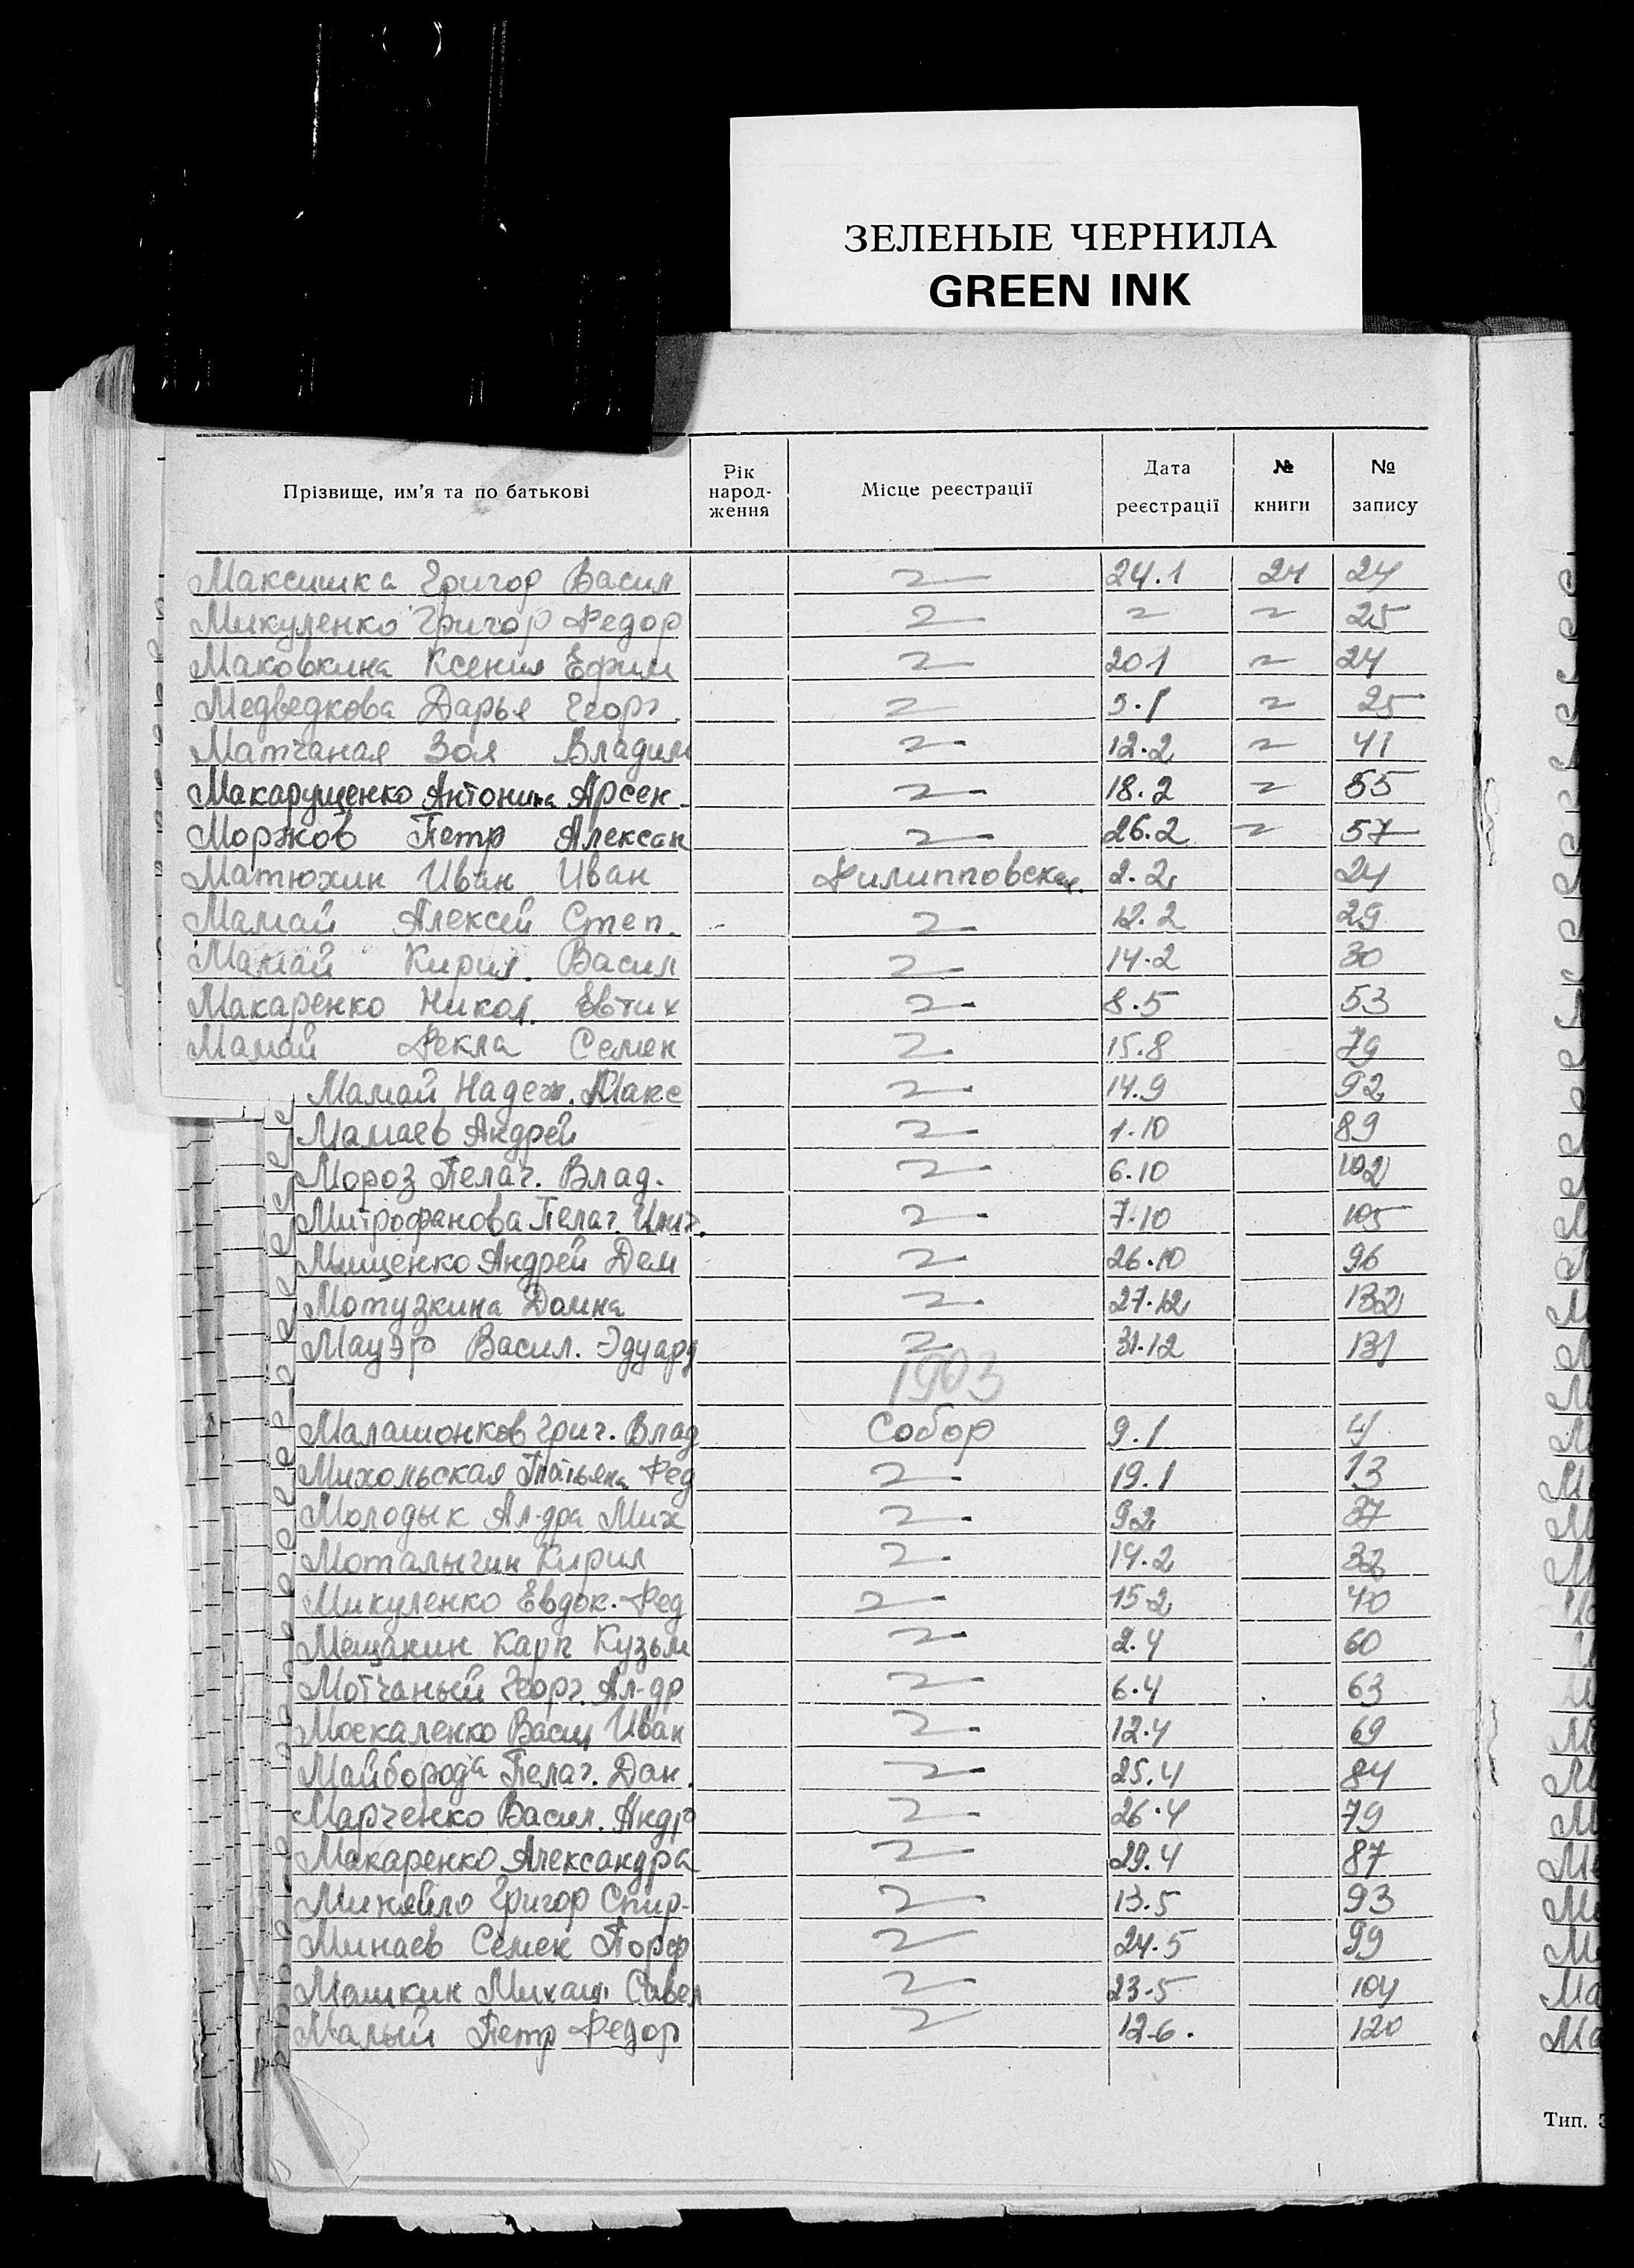 ЗЕЛЕНЫЕ ЧЕРНИЛА
GREEN INK
Прізвище, им'я та по батькові Рік народ-ження Місце реєстрації Дата реєстрації № книги № запису
Максишка Григор Васил 〃 24.1 24 24
Микуленко Григор Федор 〃 〃 〃 25
Маковкина Ксения Ефим 〃 20 1 〃 24
Медведкова Дарья Георг. 〃 3.1 〃 25
Матчаная Зоя Владим 〃 12.2 〃 41
Макарущенко Антонина Арсен 〃 18.2 〃 55
Моржов Петр Алексан 〃 26.2 〃 57
Матюхин Иван Иван Филипповская. 2.2 24
Мамай Алексей Степ. 〃 12.2 29
Мамай Кирил. Васил 〃 14.2 30
Макаренко Никол. Евтих 〃 8.5 53
Мамай Фекла Семен 〃 15.8 79
Мамай Надеж. Макс 〃 14.9 92
Мамаев Андрей 〃 1.10 89
Мороз Пелаг. Влад. 〃 6.10 102
Митрофанова Пелаг. 〃 7.10 105
Мищенко Андрей Дем 〃 26.10 96
Мотузкина Домна 〃 27.12 132
Мауэр Васил. Эдуард 〃 31.12 131
1903
Малашонков Григ. Влад Собор 9.1 4
Михольская Татьяна Фед 〃 19.1 13
Молодык Ал-дра Мих 〃 9 2 37
Моталыгин Кирил 〃 14.2 32
Микуленко Евдок. Фед 〃 15 2 40
Мещанин Карп Кузьм 〃 2.4 60
Мотчаный Георг. Ал-др 〃 6.4 63
Москаленко Васил Иван 〃 12.4 69
Майборода Пелаг. Дан. 〃 25.4 84
Марченко Васил. Андр 〃 26.4 79
Макаренко Александра 〃 29.4 87
Григор Спир. 〃 13.5 93
Минаев Семен Порф 〃 24.5 99
Машкин Михаил Савел 〃 23.5 104
Малый Петр Федор 〃 12.6. 120
Тип.